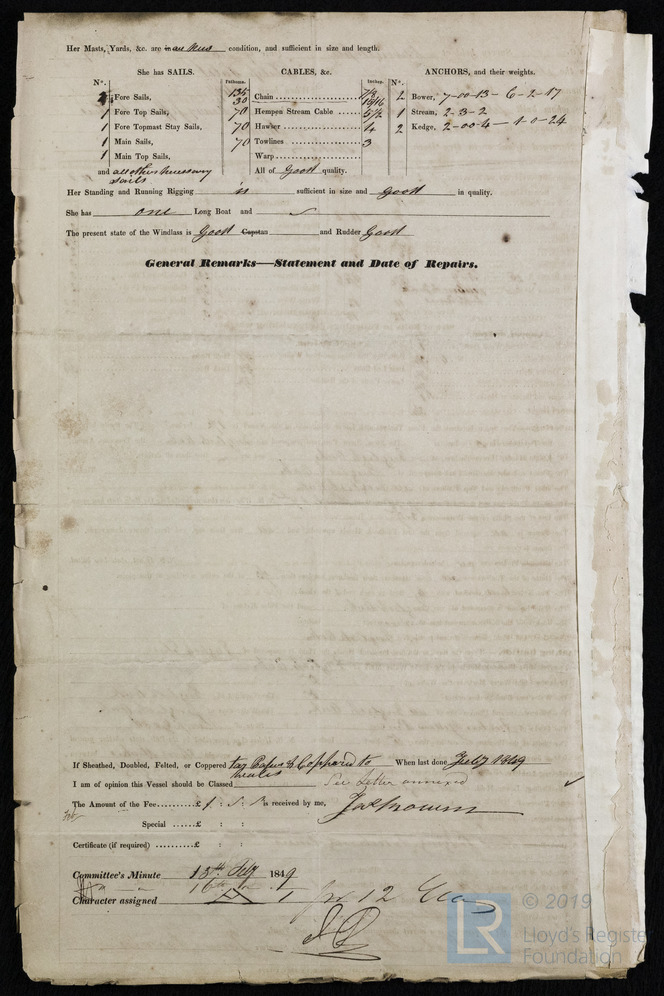 Her Masts, Yards, &c. are in condition, and sufficient in size and length.
She has SAILS. CABLES, &c. ANCHORS, and their weights.
N°. Fathoms. Inches. N°.
Fore Sails, 135 Chain 7/8 2 Bower, 7-00-13- 6-2-17
30 15/16
1 Fore Top Sails, 70 Hempen Stream Cable 5 1/2 1 Stream, 2-3-2
1 Fore Topmast Stay Sails, 70 Hawser 4 2 Kedge, 2-00-4- 1-0-24
1 Main Sails, 70 Towlines 3
1 Main Top Sails, Warp
and all other necessary sails All of Good quality.
Her Standing and Running Rigging is sufficient in size and good in quality.
She has one Long Boat and
The present state of the Windlass is Good Capstan and Rudder Good
General Remarks—Statement and Date of Repairs.
If Sheathed, Doubled, Felted, or Coppered & Coppered to When last done July 1849
wales
I am of opinion this Vessel should be Classed See Letter annexed
The Amount of the Fee £ 1 : : is received by me,
Special £ : :
Certificate (if required) £ : :
Committee's Minute 13th July 1849
Character assigned A 1 for 12
© 2019
LR
Lloyd's Register
Foundation